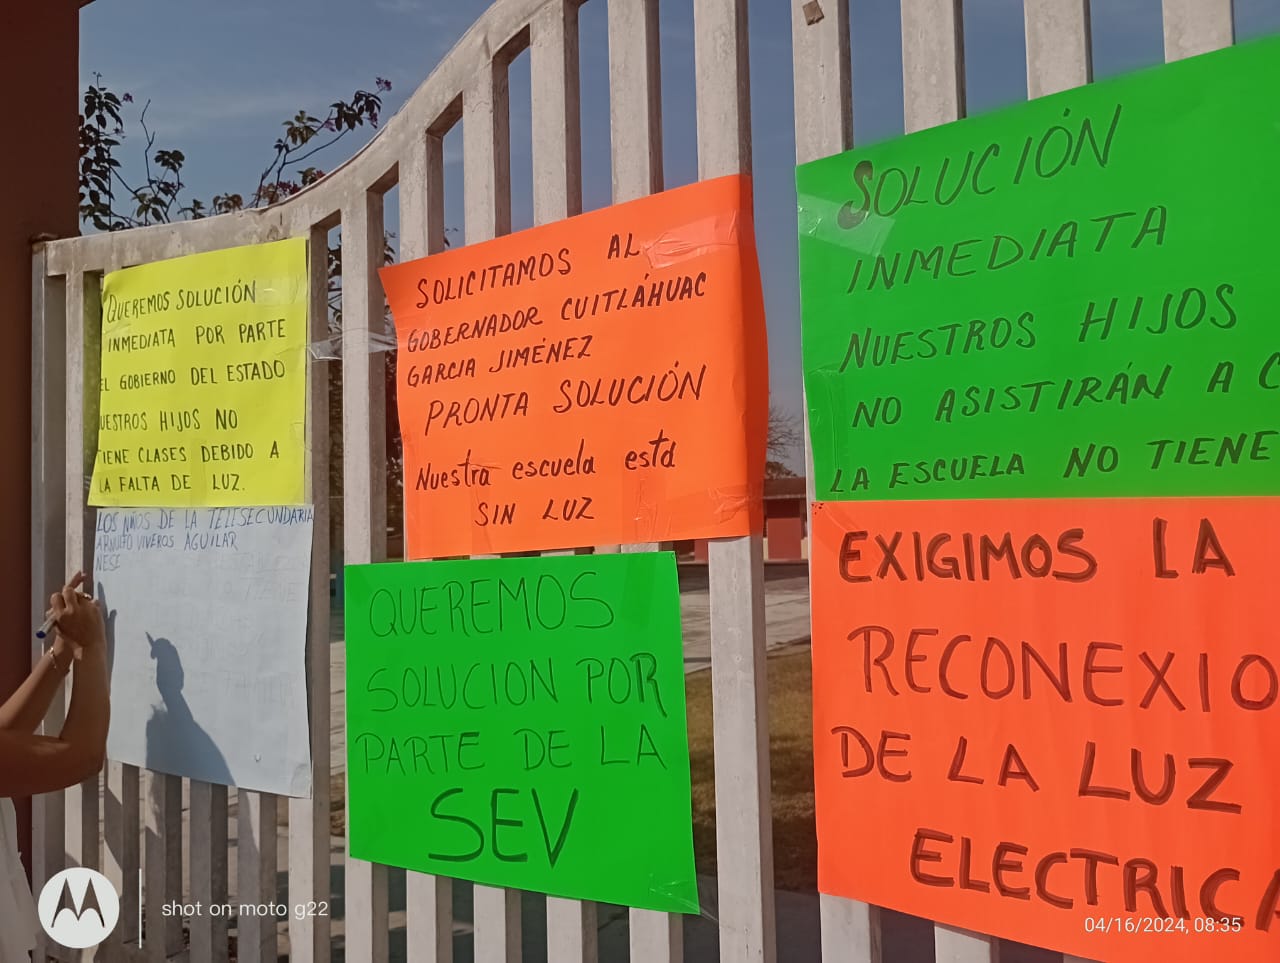 QUEREMOS SOLUCIÓN
INMEDIATA POR PARTE
EL GOBIERNO DEL ESTADO
UESTROS HIJOS NO
TIENE CLASES DEBIDO A
LA FALTA DE LUZ.
LOS NIÑOS DE LA TELESECUNDARIA
ARNULFO VIVEROS AGUILAR
SOLICITAMOS AL
GOBERNADOR CUITLÁHUAC
GARCIA JIMÉNEZ
PRONTA SOLUCIÓN
Nuestra escuela está
SIN LUZ
QUEREMOS
SOLUCION POR
PARTE DE LA
SEV
SOLUCIÓN
INMEDIATA
NUESTROS HIJOS
NO ASISTIRÁN A C
LA ESCUELA NO TIENE
EXIGIMOS LA
RECONEXIO
DE LA LUZ
ELECTRICA
shot on moto g22
04/16/2024, 08:35